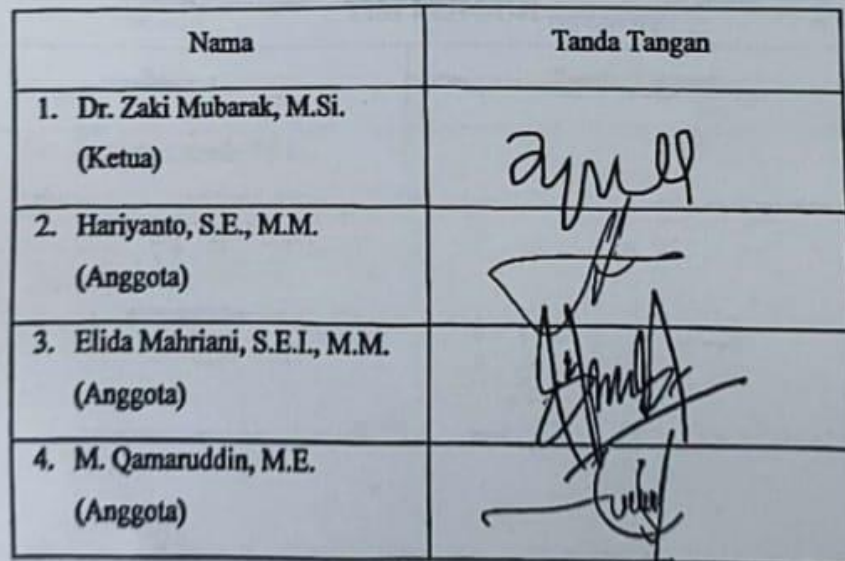 Nama
Tanda Tangan
1. Dr. Zaki Mubarak, M.Si.
(Ketua)
2. Hariyanto, S.E., M.M.
(Anggota)
3. Elida Mahriani, S.E.I., M.M.
(Anggota)
4. M. Qamaruddin, M.E.
(Anggota)